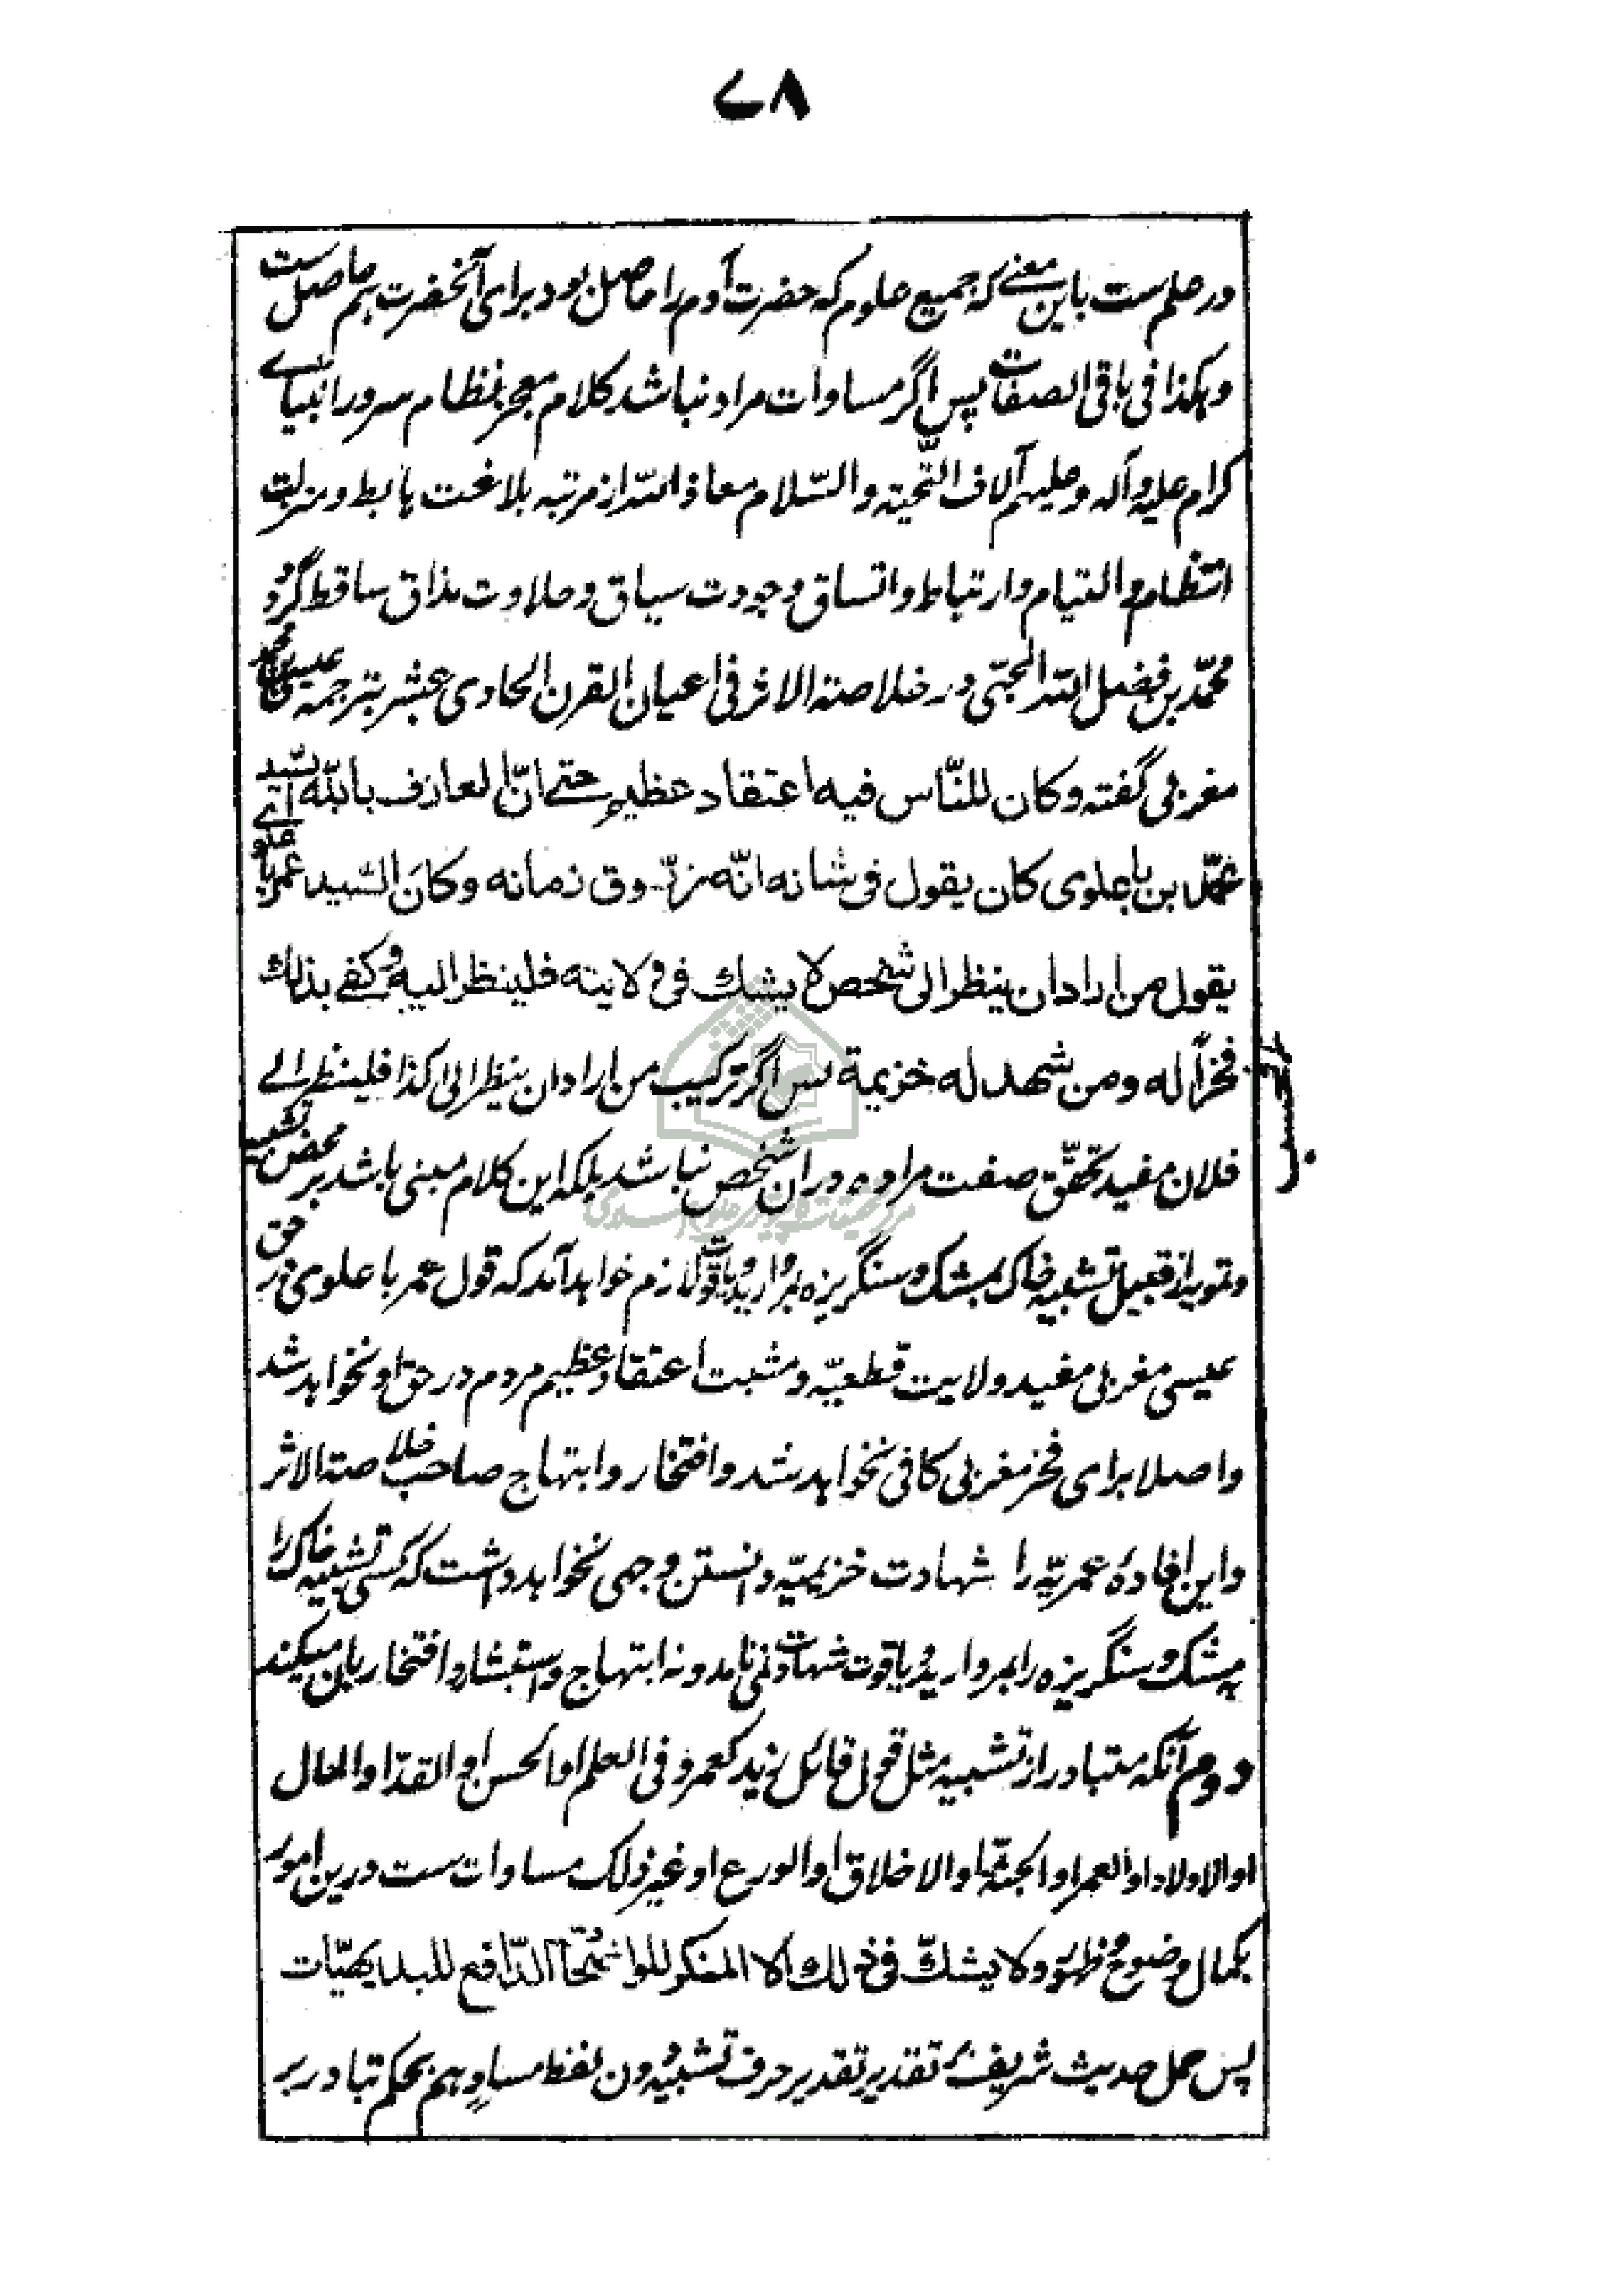 ۷۸
در علم ست باین معنے که جمیع علوم که حضرت آدم را حاصل بود برای آنحضرت هم حاصل ست
و هکذا فی باقی الصفات پس اگر مساوات مراد نباشد کلام معجز نظام سرور انبیاے
کرام علیه و آله و علیهم آلاف التّحیّة و السّلام معاذ اللّه از مرتبه بلاغت هابط و منزلت
انتظام و التیام و ارتباط و اتساق وجودت سیاق و حلاوت مذاق ساقط گردد
محمّد بن فضل اللّه المحبّی در خلاصة الاثر فی اعیان القرن الحادی عشر بترجمه عیسی بن محمد
مغربی گفته و کان للنّاس فیه اعتقاد عظیم حتے انّ العارف باللّه السّید
محمّد بن باعلوی کان یقول فی شانه انّه زرّوق زمانه و کانَ السّید عمر با علوی
یقول من اراد ان ینظر الی شخص لا یشك فی ولایته فلینظر الیه و کفے بذلك
فخرًا له و من شهد له خزیمة پس اگر ترکیب من اراد ان ینظر الی کذا فلینظر الے
فلان مفید تحقّق صفت مراده در ان شخص نباشد بلکه این کلام مبنی باشد بر محض تشبیه
از قبیل تشبیه خاک بمشک و سنگریزه بمروارید و یاقوت لازم خواهد آمد که قول عمر باعلوی در حق
عیسی مغربی مفید ولایت قطعیّه و مثبت اعتقاد عظیم مردم در حق او نخواهد شد
و اصلا برای فخر مغربی کافی نخواهد شد و افتخار و ابتهاج صاحب خلاصة الاثر
و این افادهٔ عمریّه را شهادت خزیمیّه دانستن وجهی نخواهد داشت که کسی تشبیه خاک را
بمشک و سنگریزه را بمروارید و یاقوت شهادت نمی نامد و نه ابتهاج و استبشار و افتخار بان میکند
دوم آنکه متبادر از تشبیه مثل قول قائل زید کعمرو فی العلم او الحسن او القدّ او المال
او الاولاد او العمر او الجثّة او الاخلاق او الورع او غیر ذلک مساوات ست درین امور
بکمال وضوح و ظهور و لا یشكّ فی ذلك الّا المنکر للواضحات الدّافع للبدیهیّات
پس حمل حدیث شریف بر تقدیر تقدیر حرف تشبیه دون لفظ مساوٍ هم بحکم تبادر بر